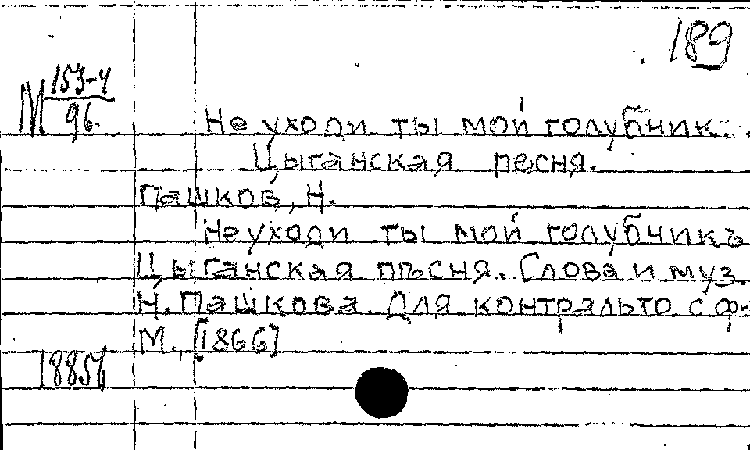 189
М 153-4
96.
Не уходи ты мой голубчик.
Цыганская песня.
Пашков, Н.
Не уходи ты мой голубчикъ
Цыганская пѣсня. Слова и муз.
Н. Пашкова. Для контральто с ф-
М., [1866]
18856